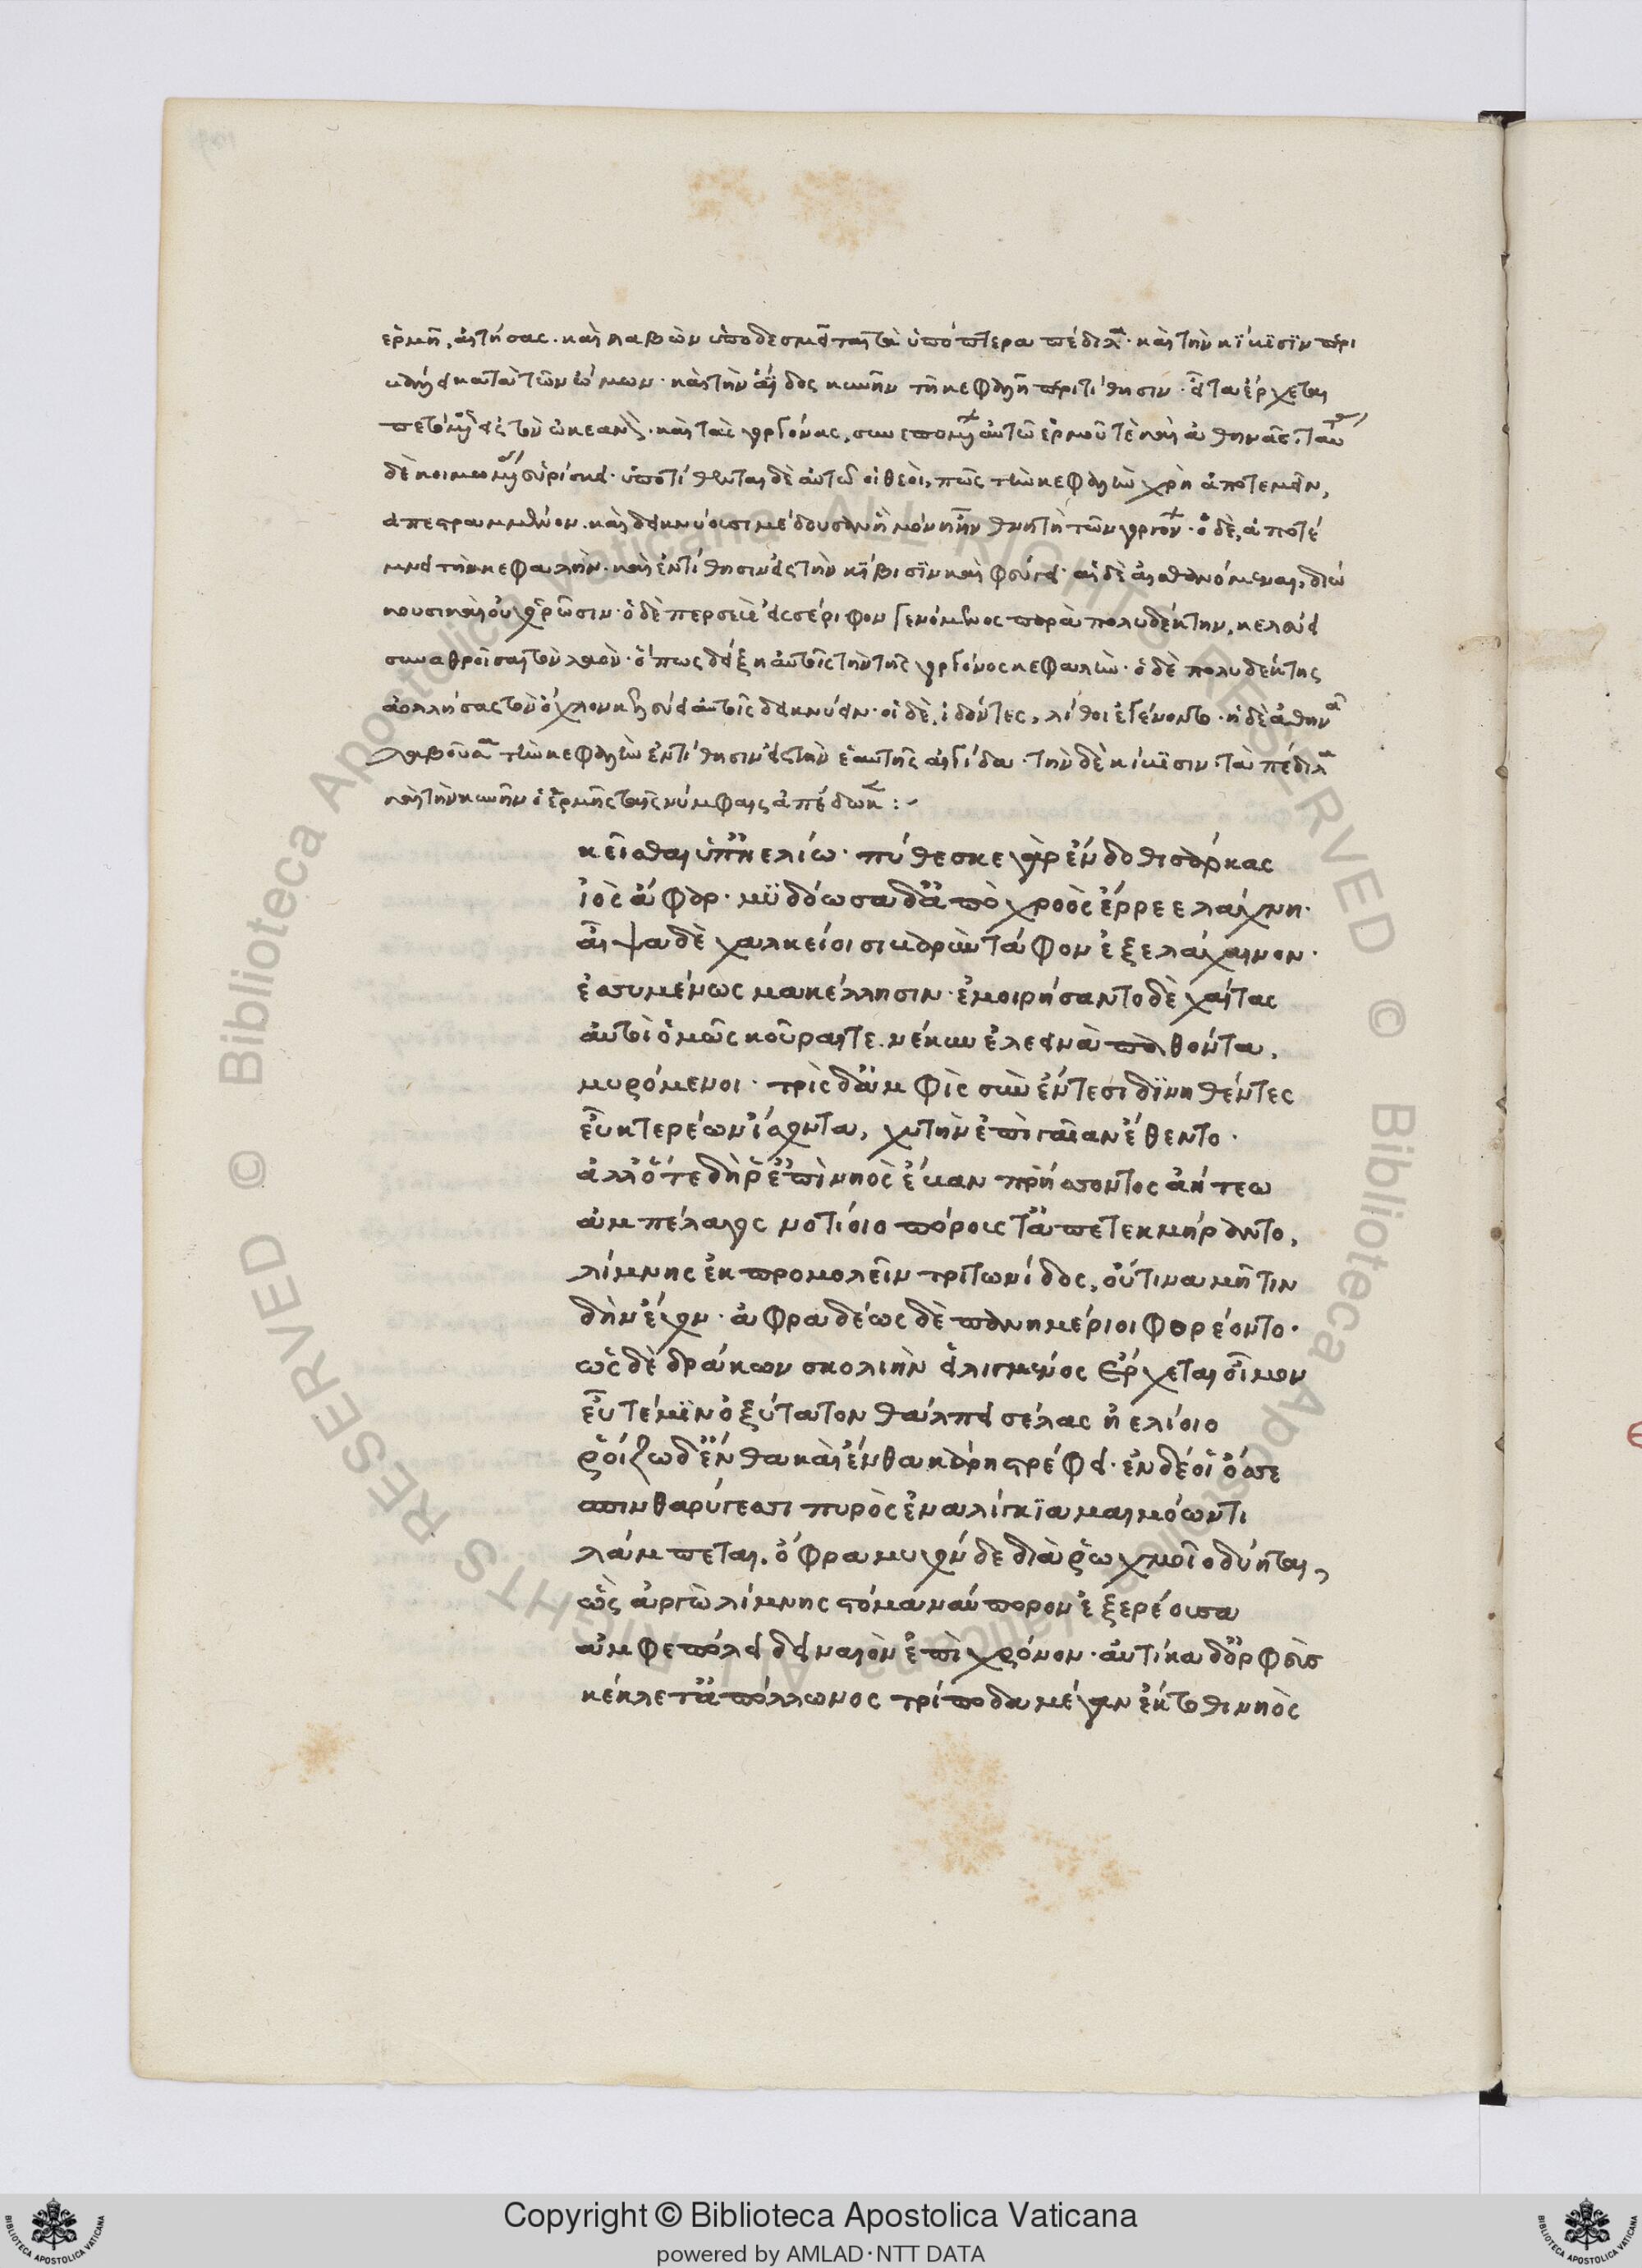 ἑρμῆν, αἰτήσας. καὶ λαβὼν ὑποδεσμεῖται τὰ ὑπόπτερα πέδιλα. καὶ τὴν κίβισιν περι
βάλλει κατὰ τῶν ὤμων. καὶ τὴν ἄϊδος κυνῆν τῇ κεφαλῇ περιτίθησιν. εἶτα ἔρχεται
πετόμενος εἰς τὸν ὠκεανὸν. καὶ τὰς γοργόνας, συνεπομένων αὐτῷ ἑρμοῦ τὲ καὶ ἀθηνᾶς. ταύτας
δὲ κοιμωμένας εὑρίσκει. ὑποτίθενται δὲ αὐτῷ οἱ θεοὶ, πῶς τὴν κεφαλὴν χρὴ ἀποτεμεῖν,
ἀπεστραμμένον. καὶ δεικνύουσι μέδουσαν ἣ μόνη ἦν θνητὴ τῶν γοργόνων. ὁ δὲ, ἀποτέ
μνει τὴν κεφαλὴν. καὶ ἐντίθησιν εἰς τὴν κίβισιν καὶ φεύγει. αἱ δὲ αἰσθανόμεναι, διώ
κουσι καὶ οὐχ ὁρῶσιν. ὁ δὲ περσεὺς εἰς σέριφον γενόμενος παρὰ πολυδέκτην, κελεύει
συναθροῖσαι τὸν λαὸν. ὅπως δείξῃ αὐτοῖς τὴν τῆς γοργόνος κεφαλὴν. ὁ δὲ πολυδέκτης
ἀολλήσας τὸν ὄχλον κελεύει αὐτοῖς δεικνύειν. οἱ δὲ, ἰδόντες, λίθοι ἐγένοντο. ἡ δὲ ἀθηνᾶ
λαβοῦσα τὴν κεφαλὴν ἐντίθησιν εἰς τὴν ἑαυτῆς αἰγίδα. τὴν δὲ κίβισιν. τὰ πέδιλα
καὶ τὴν κυνῆν ὁ ἑρμῆς ταῖς νύμφαις ἀπέδωκε:
κεῖσθαι ὑπ' ἠελίω. πύθεσκε γὰρ ἔνδοθι σάρκας
ἰὸς ἄφαρ. μυδόωσα δ' ἀπὸ χροὸς ἔρρεε λάχνη.
αἶψα δὲ χαλκείοισι βαθὺν τάφον ἐξελάχαινον.
ἐσσυμένως μακέλλησιν. ἐμοιρήσαντο δὲ χαίτας
αὐτοὶ ὁμῶς κοῦραί τε. νέκυν ἐλεεινὰ παθόντα,
μυρόμενοι. τρὶς δ' ἀμφὶς σὺν ἔντεσι δινηθέντες
εὖ κτερέων ἴσχοντα, χυτὴν ἐπὶ γαῖαν ἔθεντο.
ἀλλ' ὅτε δή ῥ' ἐπὶ νηὸς ἔβαν πρήσοντος ἀήτεω
ἀμ πέλαγος νοτίοιο πόρους τ' ἀπετεκμήραντο,
λίμνης ἐκ προμολεῖν τριτωνίδος, οὔτινα μῆτιν
δὴν ἔχον. ἀφραδέως δὲ πανημέριοι φορέοντο.
ὡς δὲ δράκων σκολιὴν εἱλιγμένος ἔρχεται οἶμον
εὖτέ μιν ὀξύτατον θάλπει σέλας ἠελίοιο
ῥοίζω δ' ἔνθα καὶ ἔνθα κάρη στρέφει. ἐν δέ οἱ ὄσσε
σπινθαρύγεσσι πυρὸς ἐναλίγκια μαιμόωντι
λάμπεται. ὄφρα μυχόν δε διὰ ῥωχμοῖο δύηται,
ὣς ἀργὼ λίμνης στόμα ναύπορον ἐξερέουσα
ἀμφεπόλει δειναιὸν ἐπὶ χρόνον. αὐτίκα δ' ὀρφεὺς
κέκλετ' ἀπόλλωνος τρίποδα μέγαν ἔκτοθι νηὸς
Copyright © Biblioteca Apostolica Vaticana
powered by AMLAD·NTT DATA